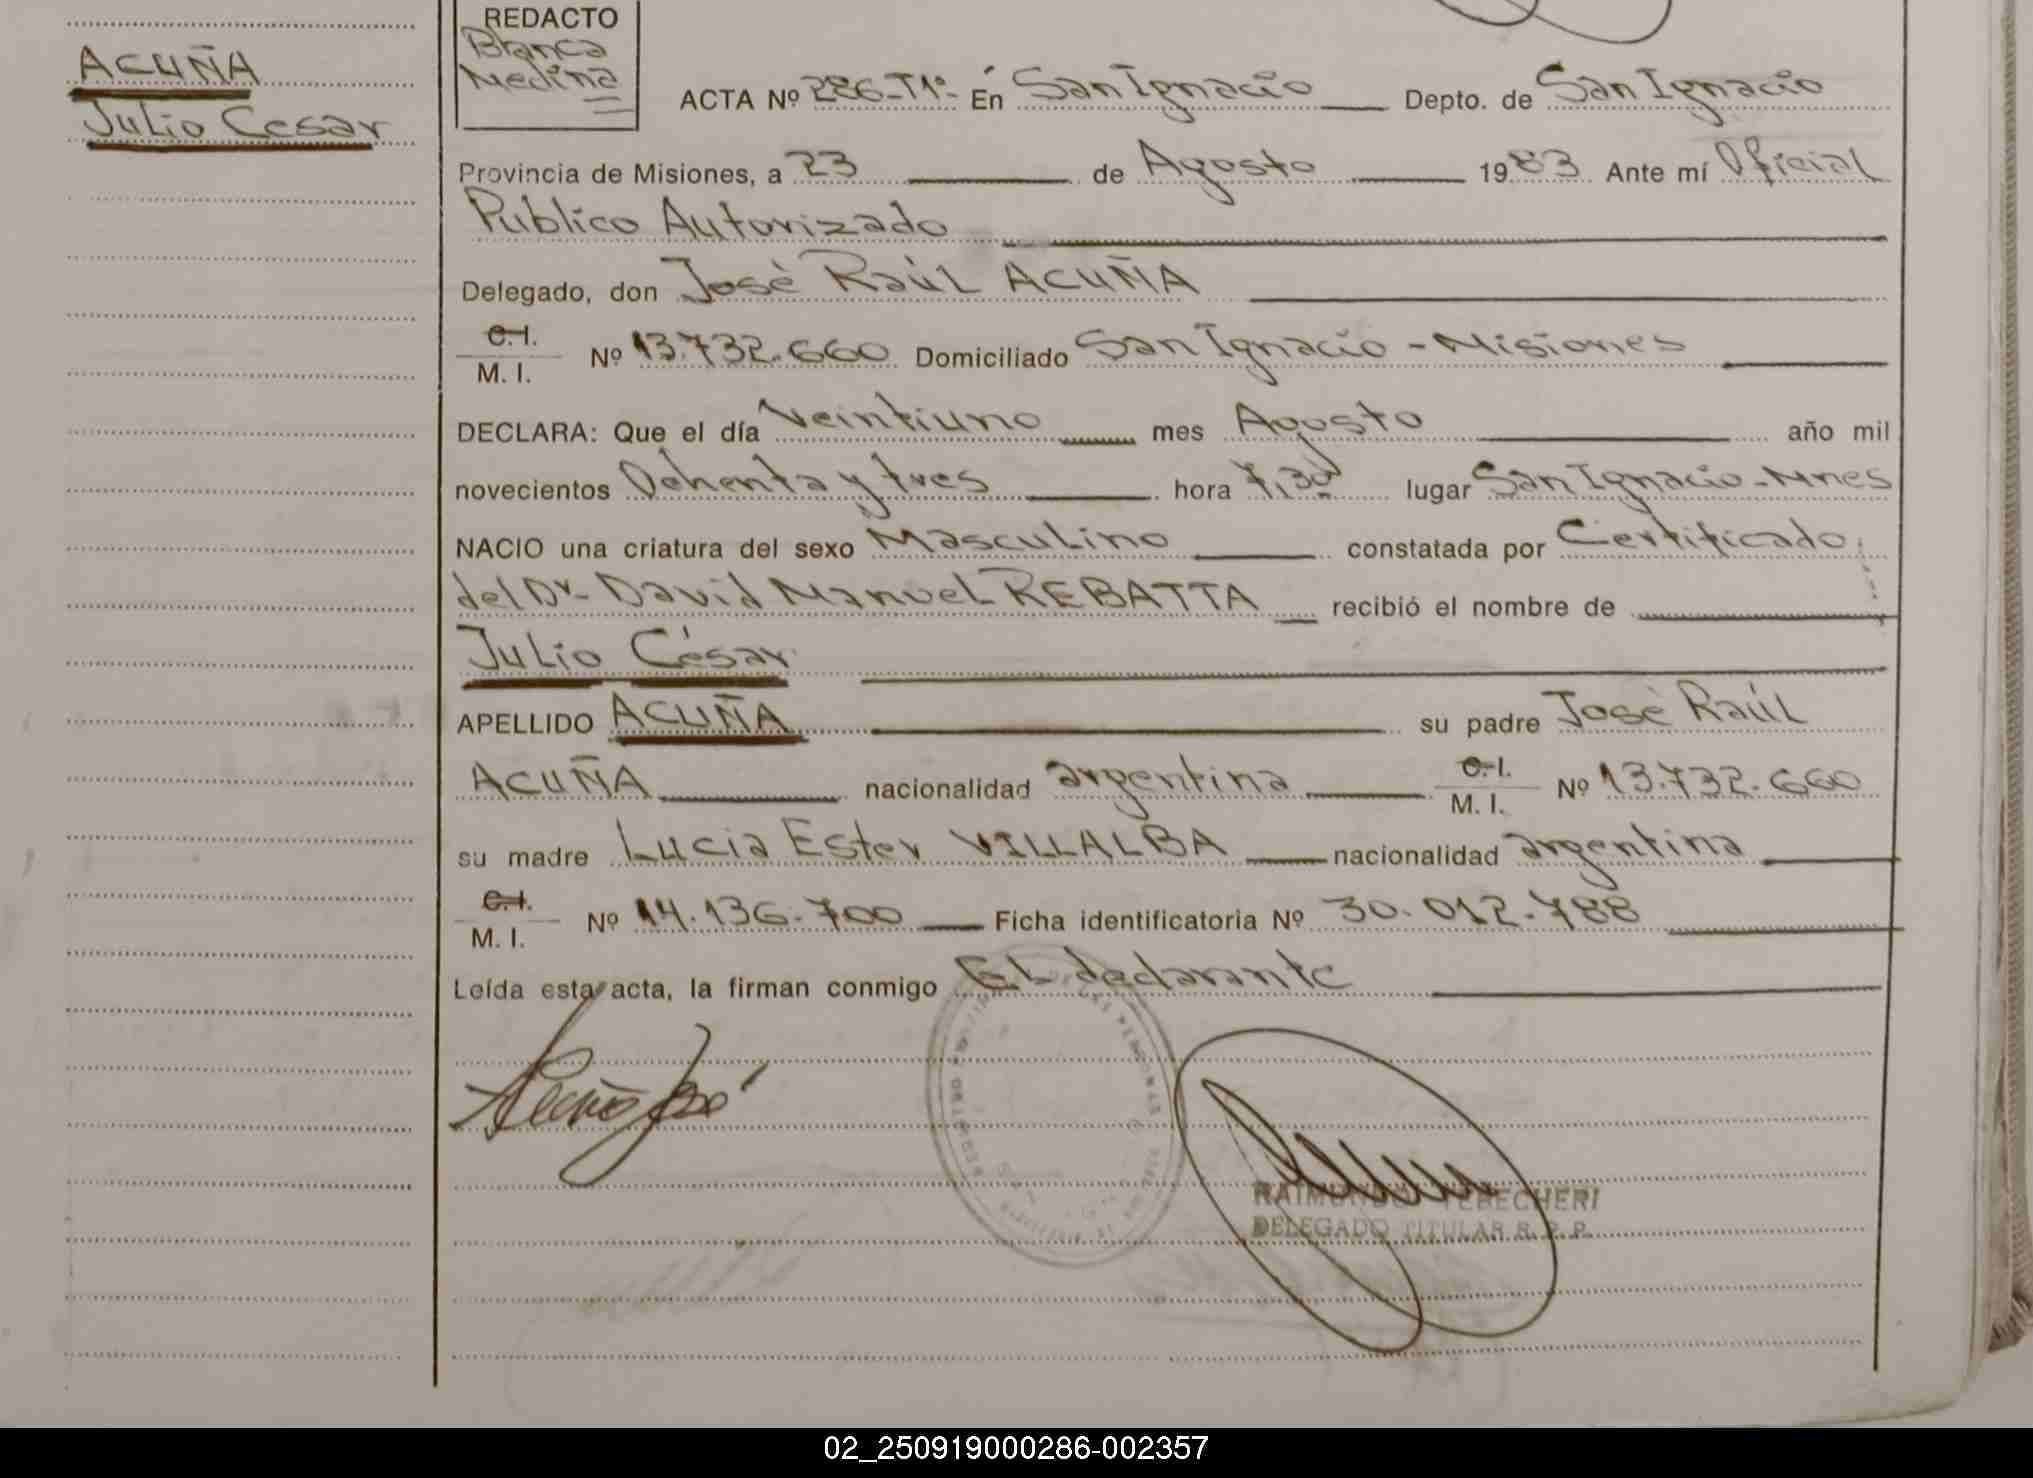 ACUÑA
Julio Cesar
REDACTO
Blanca
Medina
ACTA Nº 286-T1º- En San Ignacio Depto. de San Ignacio
Provincia de Misiones, a 23 de Agosto 1983 Ante mí Oficial
Publico Autorizado
Delegado, don José Raúl ACUÑA
C.I.
M. I. Nº 13.732.660 Domiciliado San Ignacio - Misiones
DECLARA: Que el día Veintiuno mes Agosto año mil
novecientos Ochenta y tres hora 7,30 lugar San Ignacio - Mnes
NACIO una criatura del sexo Masculino constatada por Certificado
del Dr. David Manuel REBATTA recibió el nombre de
Julio César
APELLIDO ACUÑA su padre José Raúl
ACUÑA nacionalidad argentina C.I. M. I. Nº 13.732.660
su madre Lucia Ester VILLALBA nacionalidad argentina
C.I.
M. I. Nº 14.136.700 Ficha identificatoria Nº 30.012.788
Leída esta acta, la firman conmigo El declarante
Acuña José
RAIMUNDO TEBECHERI
DELEGADO TITULAR R. P. P.
02_250919000286-002357